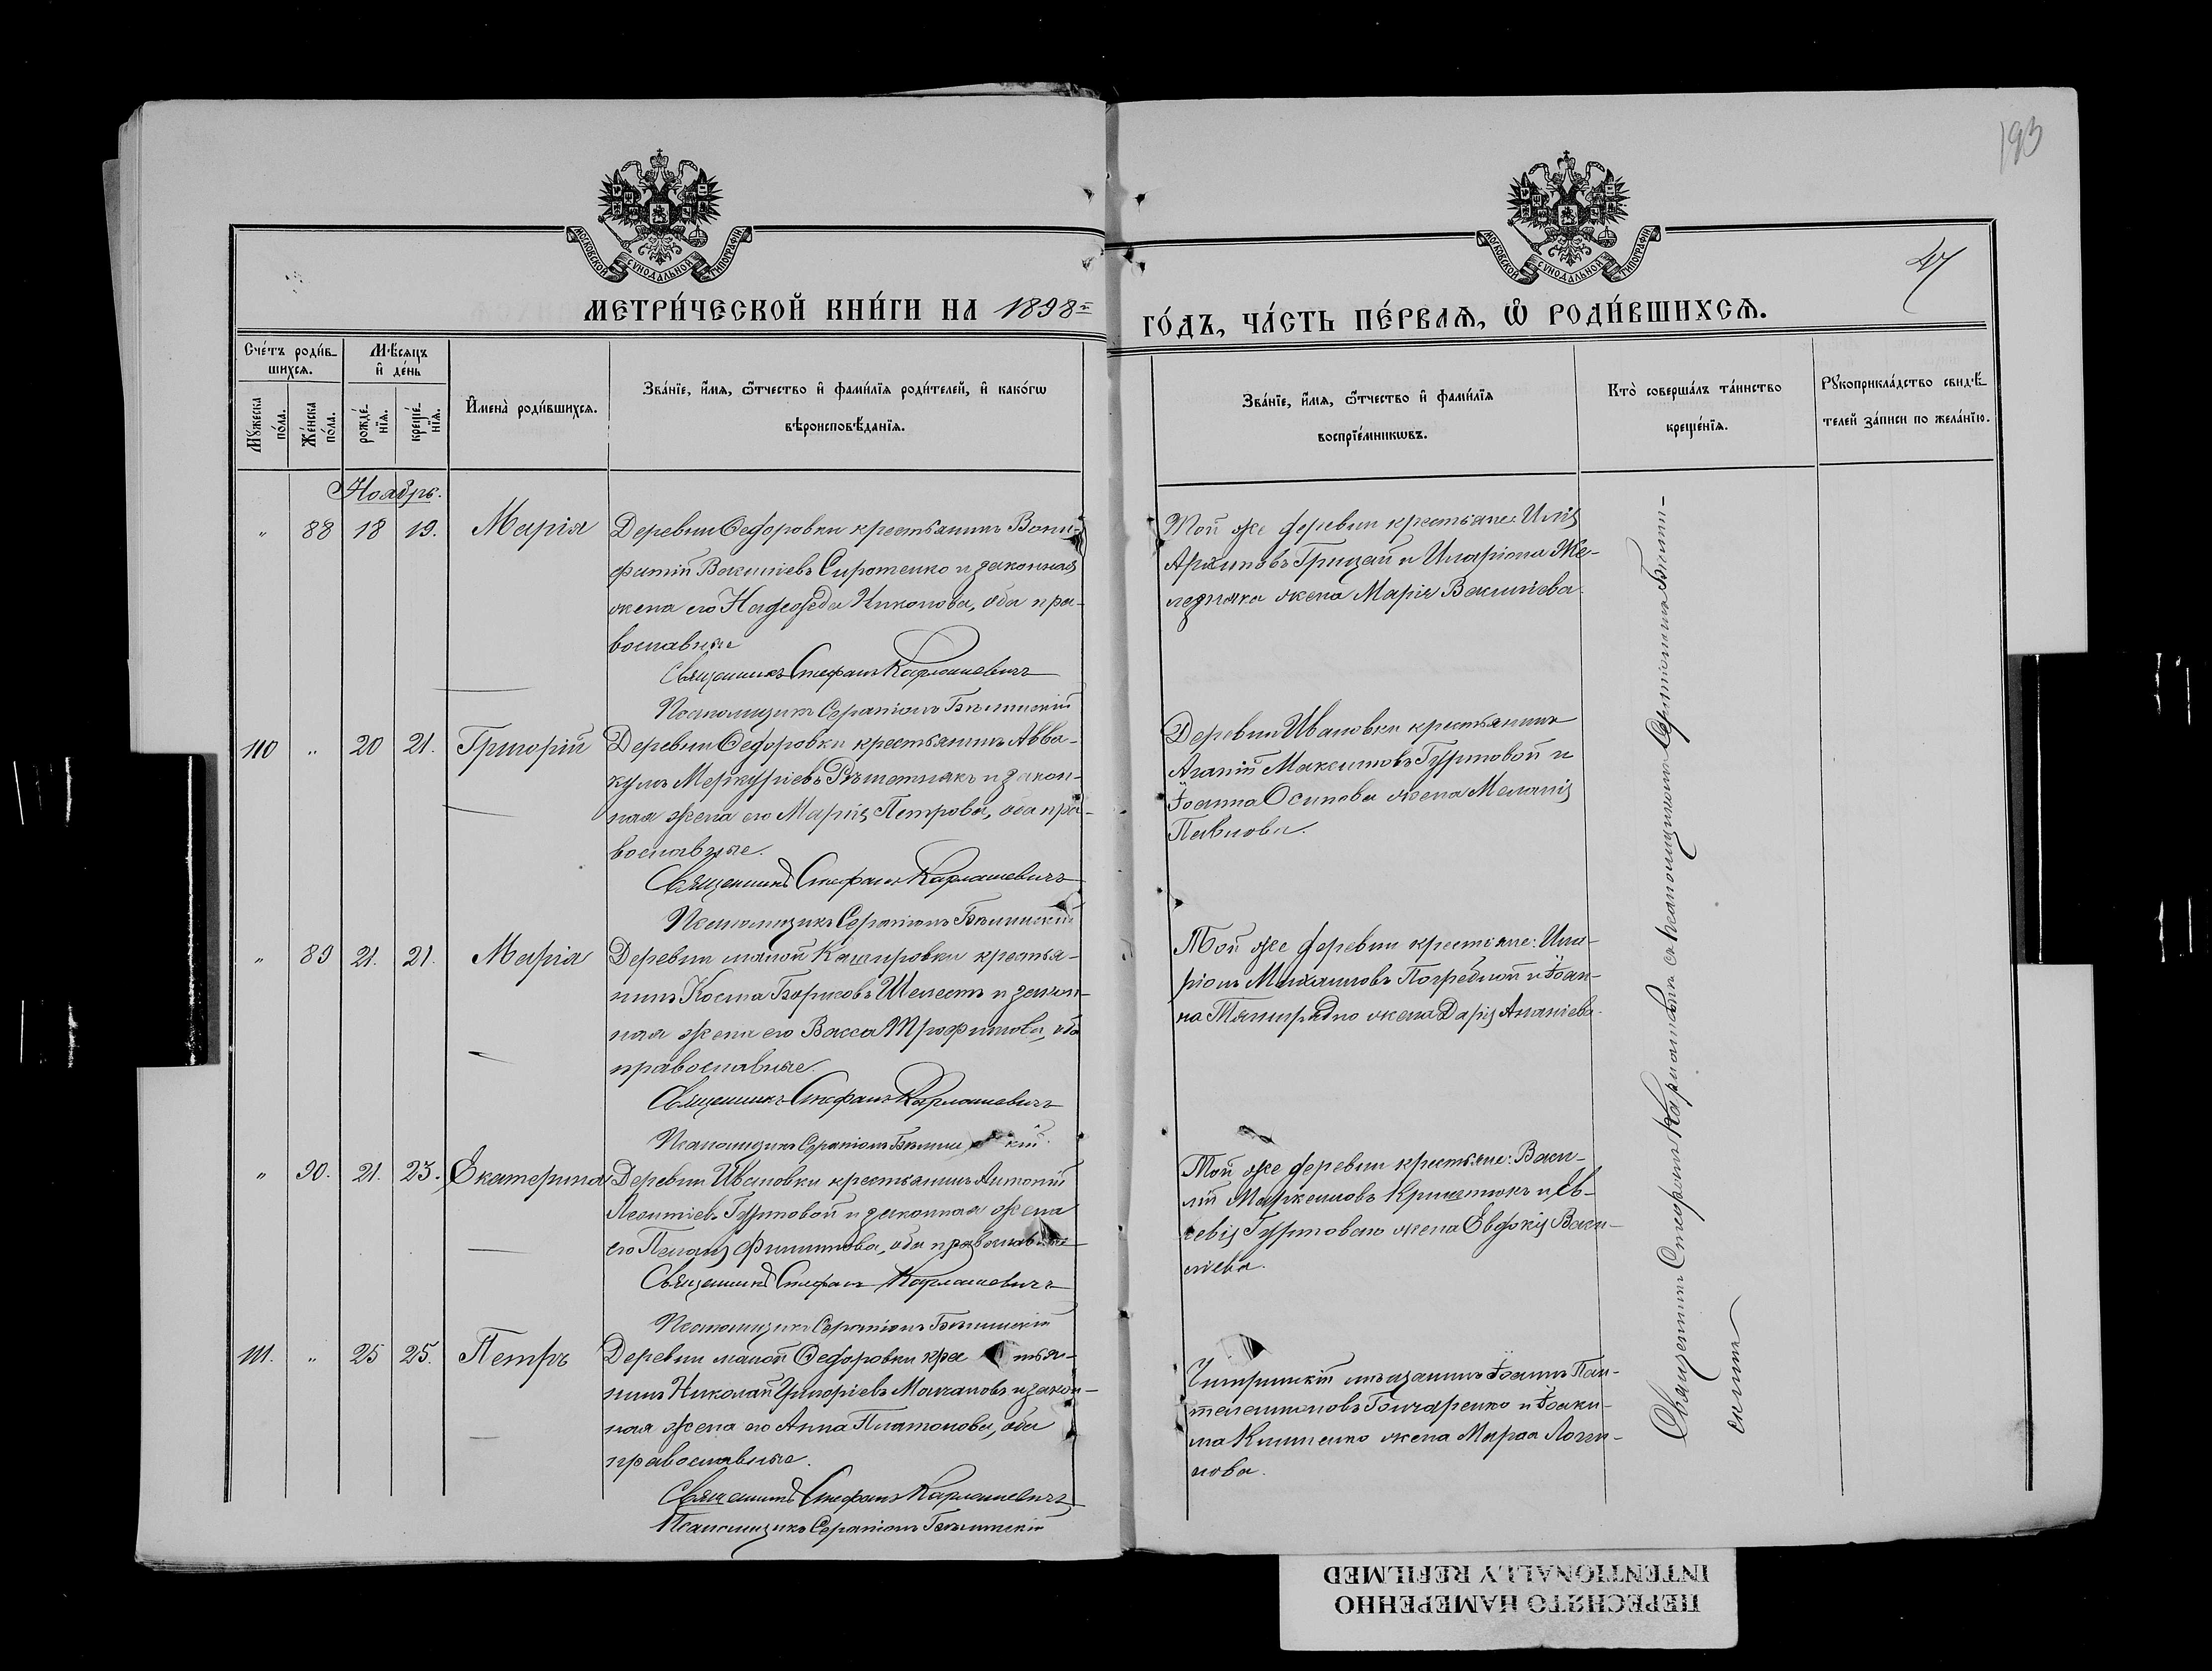 193
МОСКОВСКОЙ СУНОДАЛЬНОЙ ТИПОГРАФІИ
МОСКОВСКОЙ СУНОДАЛЬНОЙ ТИПОГРАФІИ
47
МЕТРИ́ЧЕСКОЙ КНИ́ГИ НА 1898й
ГО́ДЪ, ЧА́СТЬ ПЕ́РВАѦ, Ѡ҆ РОДИ́ВШИХСѦ.
Сче́тъ роди́в-
шихся.
Мѣ́сяцъ
и҆ де́нь
Мꙋ́жеска по́ла.
Же́нска по́ла.
рожде́-нїя.
креще́-нїя.
И҆мена̀ роди́вшихся.
Зва́нїе, и҆́мя, ѻ҆́тчество и҆ фами́лїя роди́телей, и҆ како́гѡ
вѣроисповѣ́данїя.
Зва́нїе, и҆́мя, ѻ҆́тчество и҆ фами́лїя
воспрїе́мникѡвъ.
Кто̀ соверша́лъ та́инство
креще́нїя.
Рꙋкоприкла́дство свидѣ́-
телей за́писи по жела́нїю.
Ноябрь.
" 88 18 19. Марія
Деревни Ѳедоровки крестьянинъ Вони-
фатій Васильевъ Сиротенко и законная
жена его Никонова, оба пра-
вославные
Священникъ Стефанъ Карпашевичъ
Псаломщикъ Серапіонъ Бѣлинскій
Той же деревни крестьяне: Илія
Архиповъ Грицай и Иларіона Же-
лезняка жена Марія
110 " 20 21. Григорій
Деревни Ѳедоровки крестьянинъ Авва-
кумъ Меркуріевъ Рѣшетнякъ и закон-
ная жена его Марія Петрова, оба пра-
вославные.
Священникъ Стефанъ Карпашевичъ
Псаломщикъ Серапіонъ Бѣлинскій
Деревни Ивановки крестьянинъ
Агапій Максимовъ Гуртовой и
Іоанна Осипова жена Меланія
Павлова.
" 89 21. 21. Марія
Деревни малой Кашировки крестья-
нинъ Косма Борисовъ Шелестъ и закон-
ная жена его Васса Трофимова, оба
православные.
Священникъ Стефанъ Карпашевичъ
Псаломщикъ Серапіонъ Бѣлин кій
Той же деревни крестьяне: Ила-
ріонъ Михаиловъ Погребной и Іоан-
на жена Дарія Ананіева.
" 90. 21. 23. Екатерина
Деревни Ивановки крестьянинъ Антоній
Леонтіевъ Гуртовой и законная жена
его Пелагія Филиппова, оба православные
Священникъ Стефанъ Карпашевичъ
Псаломщикъ Серапіонъ Бѣлинскій
Той же деревни крестьяне: Васи-
лій Маркелловъ и Ев-
севія Гуртоваго жена Евдокія Васи-
ліева.
111. " 25 25. Петръ
Деревни малой Ѳедоровки кре стья-
нинъ Николай Григоріевъ Молчановъ и закон-
ная жена его Анна Платонова, оба
православные.
Священникъ Стефанъ Карпашевичъ
Псаломщикъ Серапіонъ Бѣлинскій
Чигиринскій мѣщанинъ Іоаннъ Пан-
телеимоновъ Гончаренко и Іоаки-
ма Клименко жена Марѳа Логги-
нова.
Священникъ Стефанъ Карпашевичъ съ псаломщикомъ Серапіономъ Бѣлин-
скимъ
ПЕРЕСНЯТО НАМЕРЕННО
INTENTIONALLY REFILMED